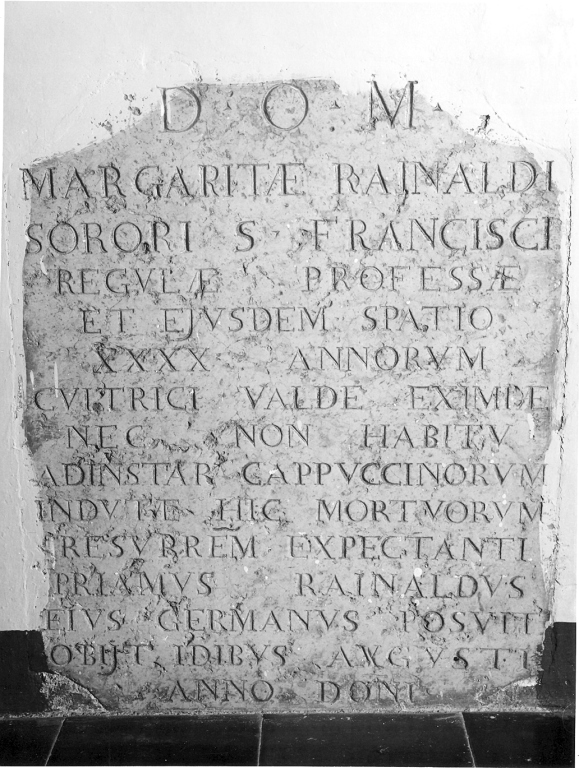 D · O · M ·
MARGARITÆ RAINALDI
SORORI S · FRANCISCI
REGVLÆ PROFESSÆ
ET EJVSDEM SPATIO
XXXX ANNORVM
CVLTRICI VALDE EXIMIE
NEC NON HABITV
ADINSTAR CAPPVCCINORVM
INDVTE HIC MORTVORVM
RESVRREM EXPECTANTI
PRIAMVS RAINALDVS
EIVS GERMANVS POSVIT
OBIJT IDIBVS AVGVSTI
ANNO DONI